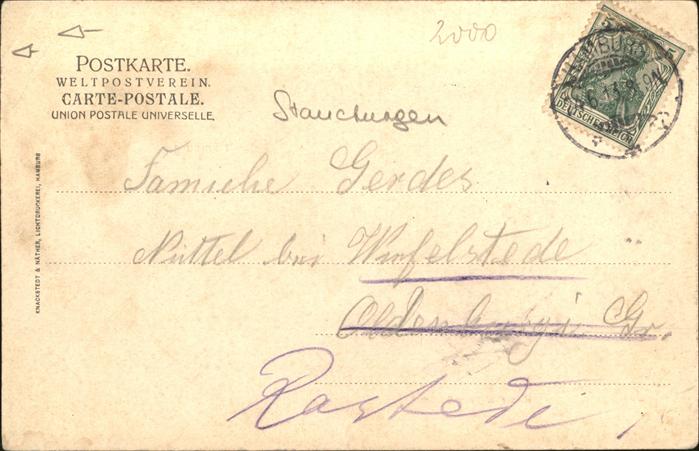 2000
POSTKARTE.
WELTPOSTVEREIN.
CARTE-POSTALE.
UNION POSTALE UNIVERSELLE.
Stauchungen
HAMBURG
DEUTSCHES REICH
Familie Gerdes
Nuttel bei Wiefelstede
Oldenburg i. Gr.
Rastede
KNACKSTEDT & NÄTHER, LICHTDRUCKEREI, HAMBURG